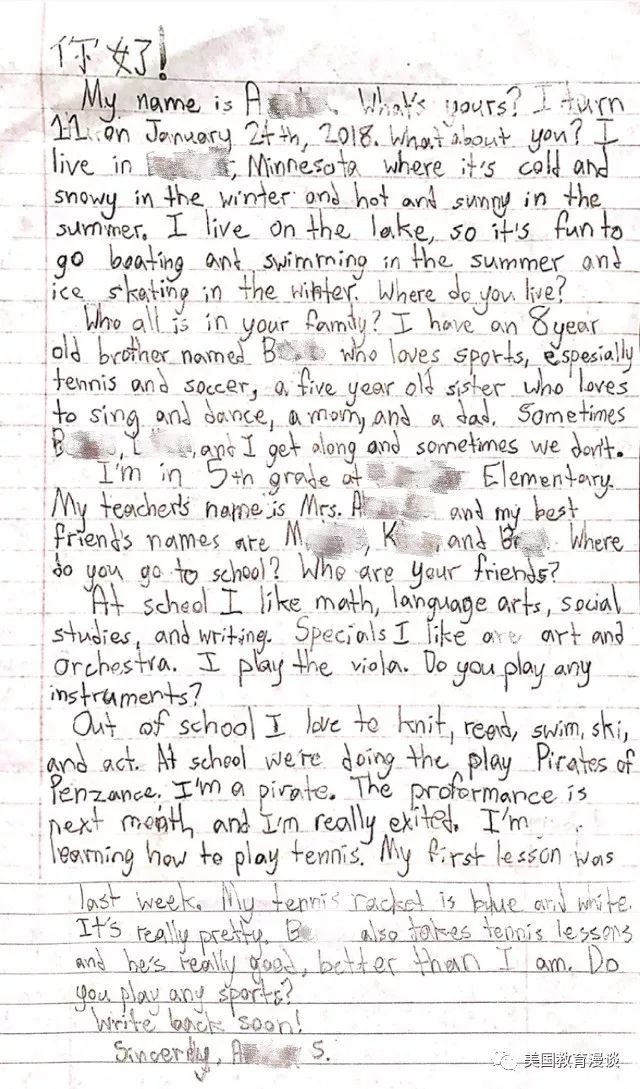 你好!
My name is A. What's yours? I turn
11 on January 24th, 2018. What about you? I
live in , Minnesota where it's cold and
snowy in the winter and hot and sunny in the
summer. I live on the lake, so it's fun to
go boating and swimming in the summer and
ice skating in the winter. Where do you live?
Who all is in your family? I have an 8 year
old brother named B who loves sports, espesially
tennis and soccer, a five year old sister who loves
to sing and dance, a mom, and a dad. Sometimes
B, , and I get along and sometimes we don't.
I'm in 5th grade at Elementary.
My teacher's name is Mrs. A and my best
friends names are M, K, and B. Where
do you go to school? Who are your friends?
At school I like math, language arts, social
studies, and writing. Specials I like are art and
orchestra. I play the viola. Do you play any
instruments?
Out of school I love to knit, read, swim, ski,
and act. At school we're doing the play Pirates of
Penzance. I'm a pirate. The proformance is
next month, and I'm really exited. I'm
learning how to play tennis. My first lesson was
last week. My tennis racket is blue and white.
It's really pretty. B also takes tennis lessons
and he's really good, better than I am. Do
you play any sports?
Write back soon!
Sincerly, A S.
美国教育漫谈